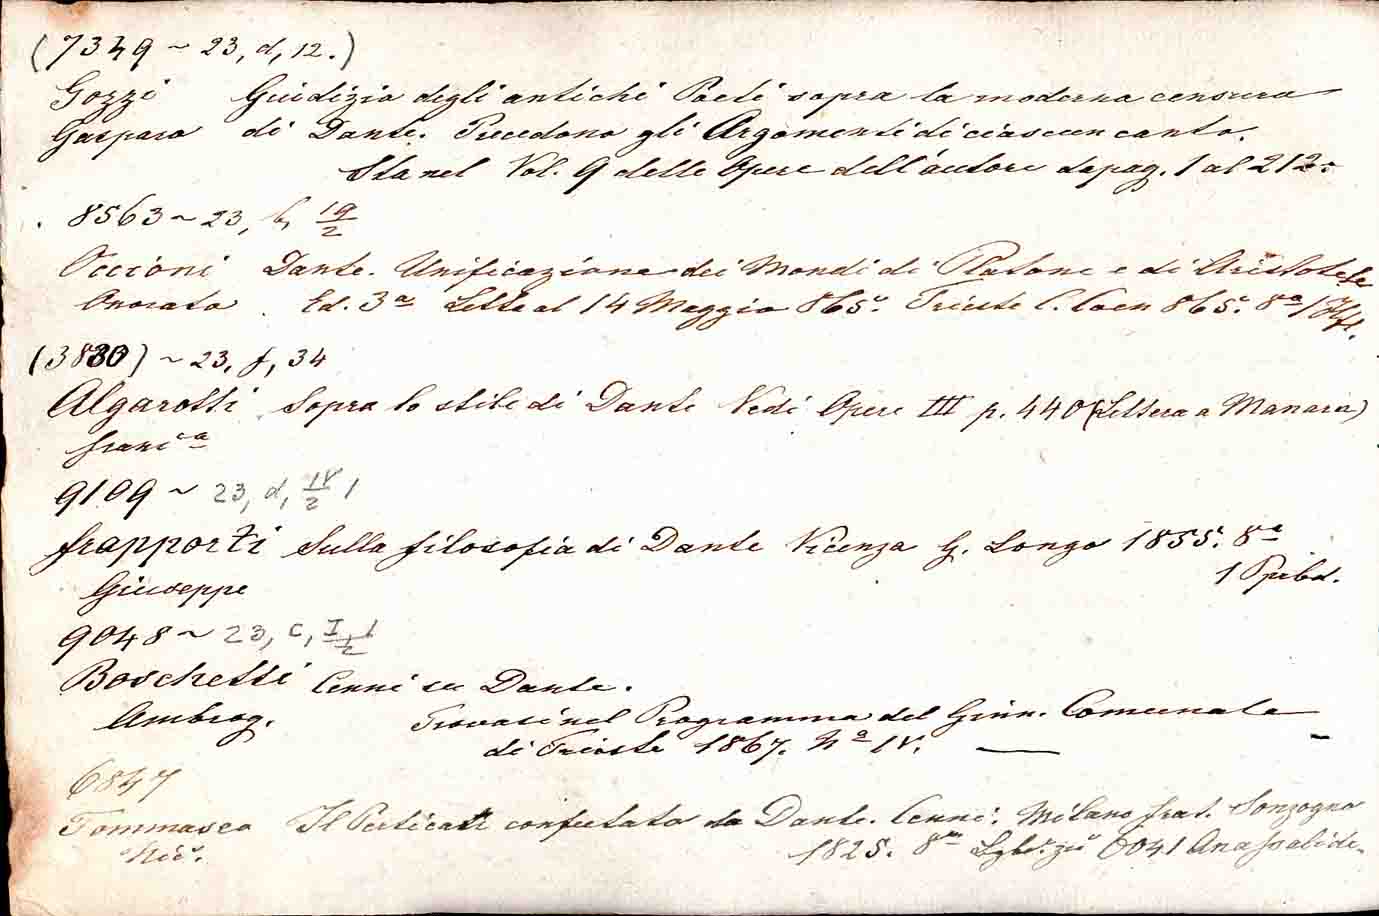 (7349 ~ 23, d, 12.)
Gozzi Giudizio degli antichi Poeti sopra la moderna censura
Gasparo di Dante. Precedono gli Argomenti di ciascun canto.
Sta nel Vol. 9 delle Opere dell'autore da pag. 1 al 212.
8563 ~ 23, b, 19/2
Occioni Dante. Unificazione dei Mondi di Platone e di Aristotele
Onorato Ed. 3a Letta al 14 Maggio 865. Trieste C. Coen 865. 8o 1
(3830) ~ 23, f, 34
Algarotti Sopra lo stile di Dante Vedi Opere III p. 440 (Lettera a Manara)
Franc.co
9109 ~ 23, d, IV/2 1
Frapporti Sulla filosofia di Dante Vicenza G. Longo 1855. 8o
1
Giuseppe
9048 ~ 23, c, I/2 1
Boschetti Cenni su Dante.
Ambrog. Trovasi nel Programma del Ginn. Comunale
di Trieste 1867. No IV. —
6847
Tommaseo Il Perticari confutato da Dante. Cenni. Milano frat. Sonzogno
Nic. 1825. 8o zu 6041